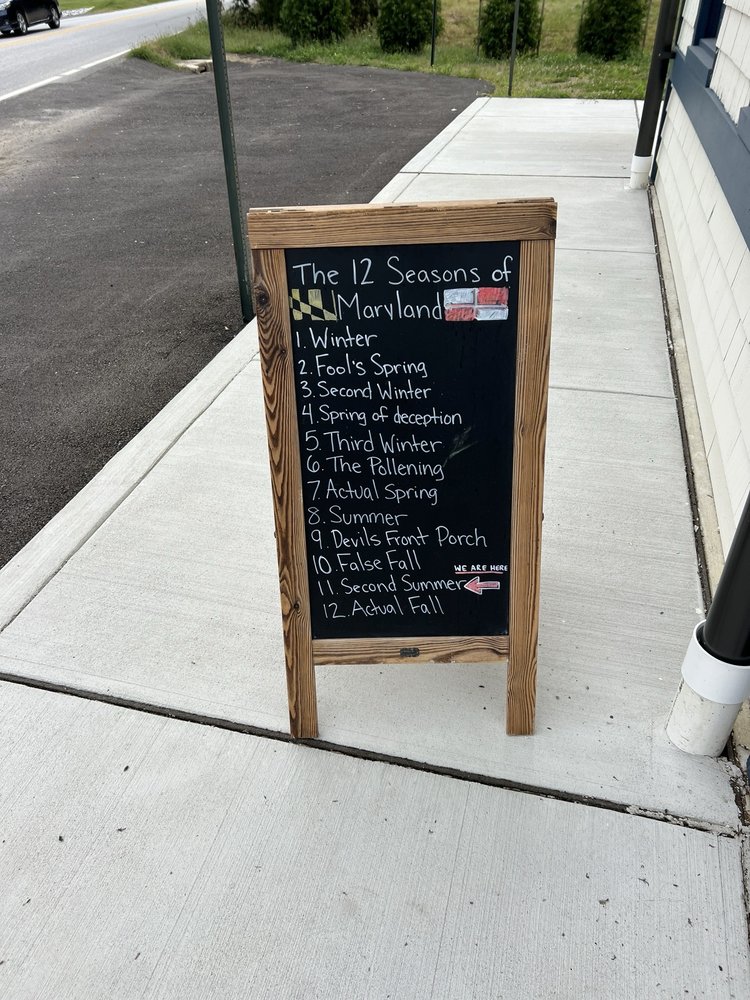 The 12 Seasons of
Maryland
1. Winter
2. Fool's Spring
3. Second Winter
4. Spring of deception
5. Third Winter
6. The Pollening
7. Actual Spring
8. Summer
9. Devils Front Porch
10. False Fall
WE ARE HERE
11. Second Summer
12. Actual Fall